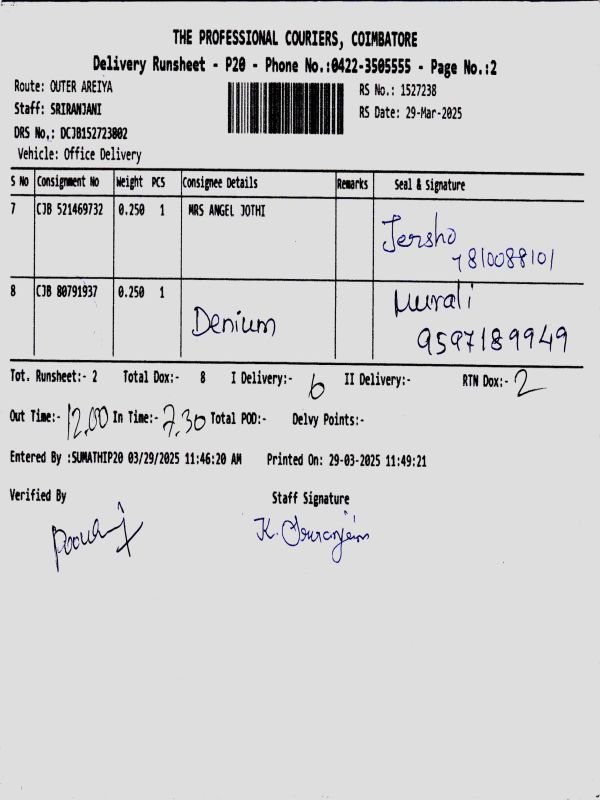 THE PROFESSIONAL COURIERS, COIMBATORE
Delivery Runsheet - P20 - Phone No.:0422-3505555 - Page No.:2
Route: OUTER AREIYA
RS No.: 1527238
Staff: SRIRANJANI
RS Date: 29-Mar-2025
DRS No.: DCJB152723802
Vehicle: Office Delivery
S No Consignment No Weight PCS Consignee Details Remarks Seal & Signature
7 CJB 521469732 0.250 1 MRS ANGEL JOTHI
Jersho
7810088101
8 CJB 80791937 0.250 1 Denium Murali
9597189949
Tot. Runsheet:- 2 Total Dox:- 8 I Delivery:- 6 II Delivery:- RTN Dox:- 2
Out Time:- 12.00 In Time:- 7.30 Total POD:- Delvy Points:-
Entered By :SUMATHIP20 03/29/2025 11:46:20 AM Printed On: 29-03-2025 11:49:21
Verified By Staff Signature